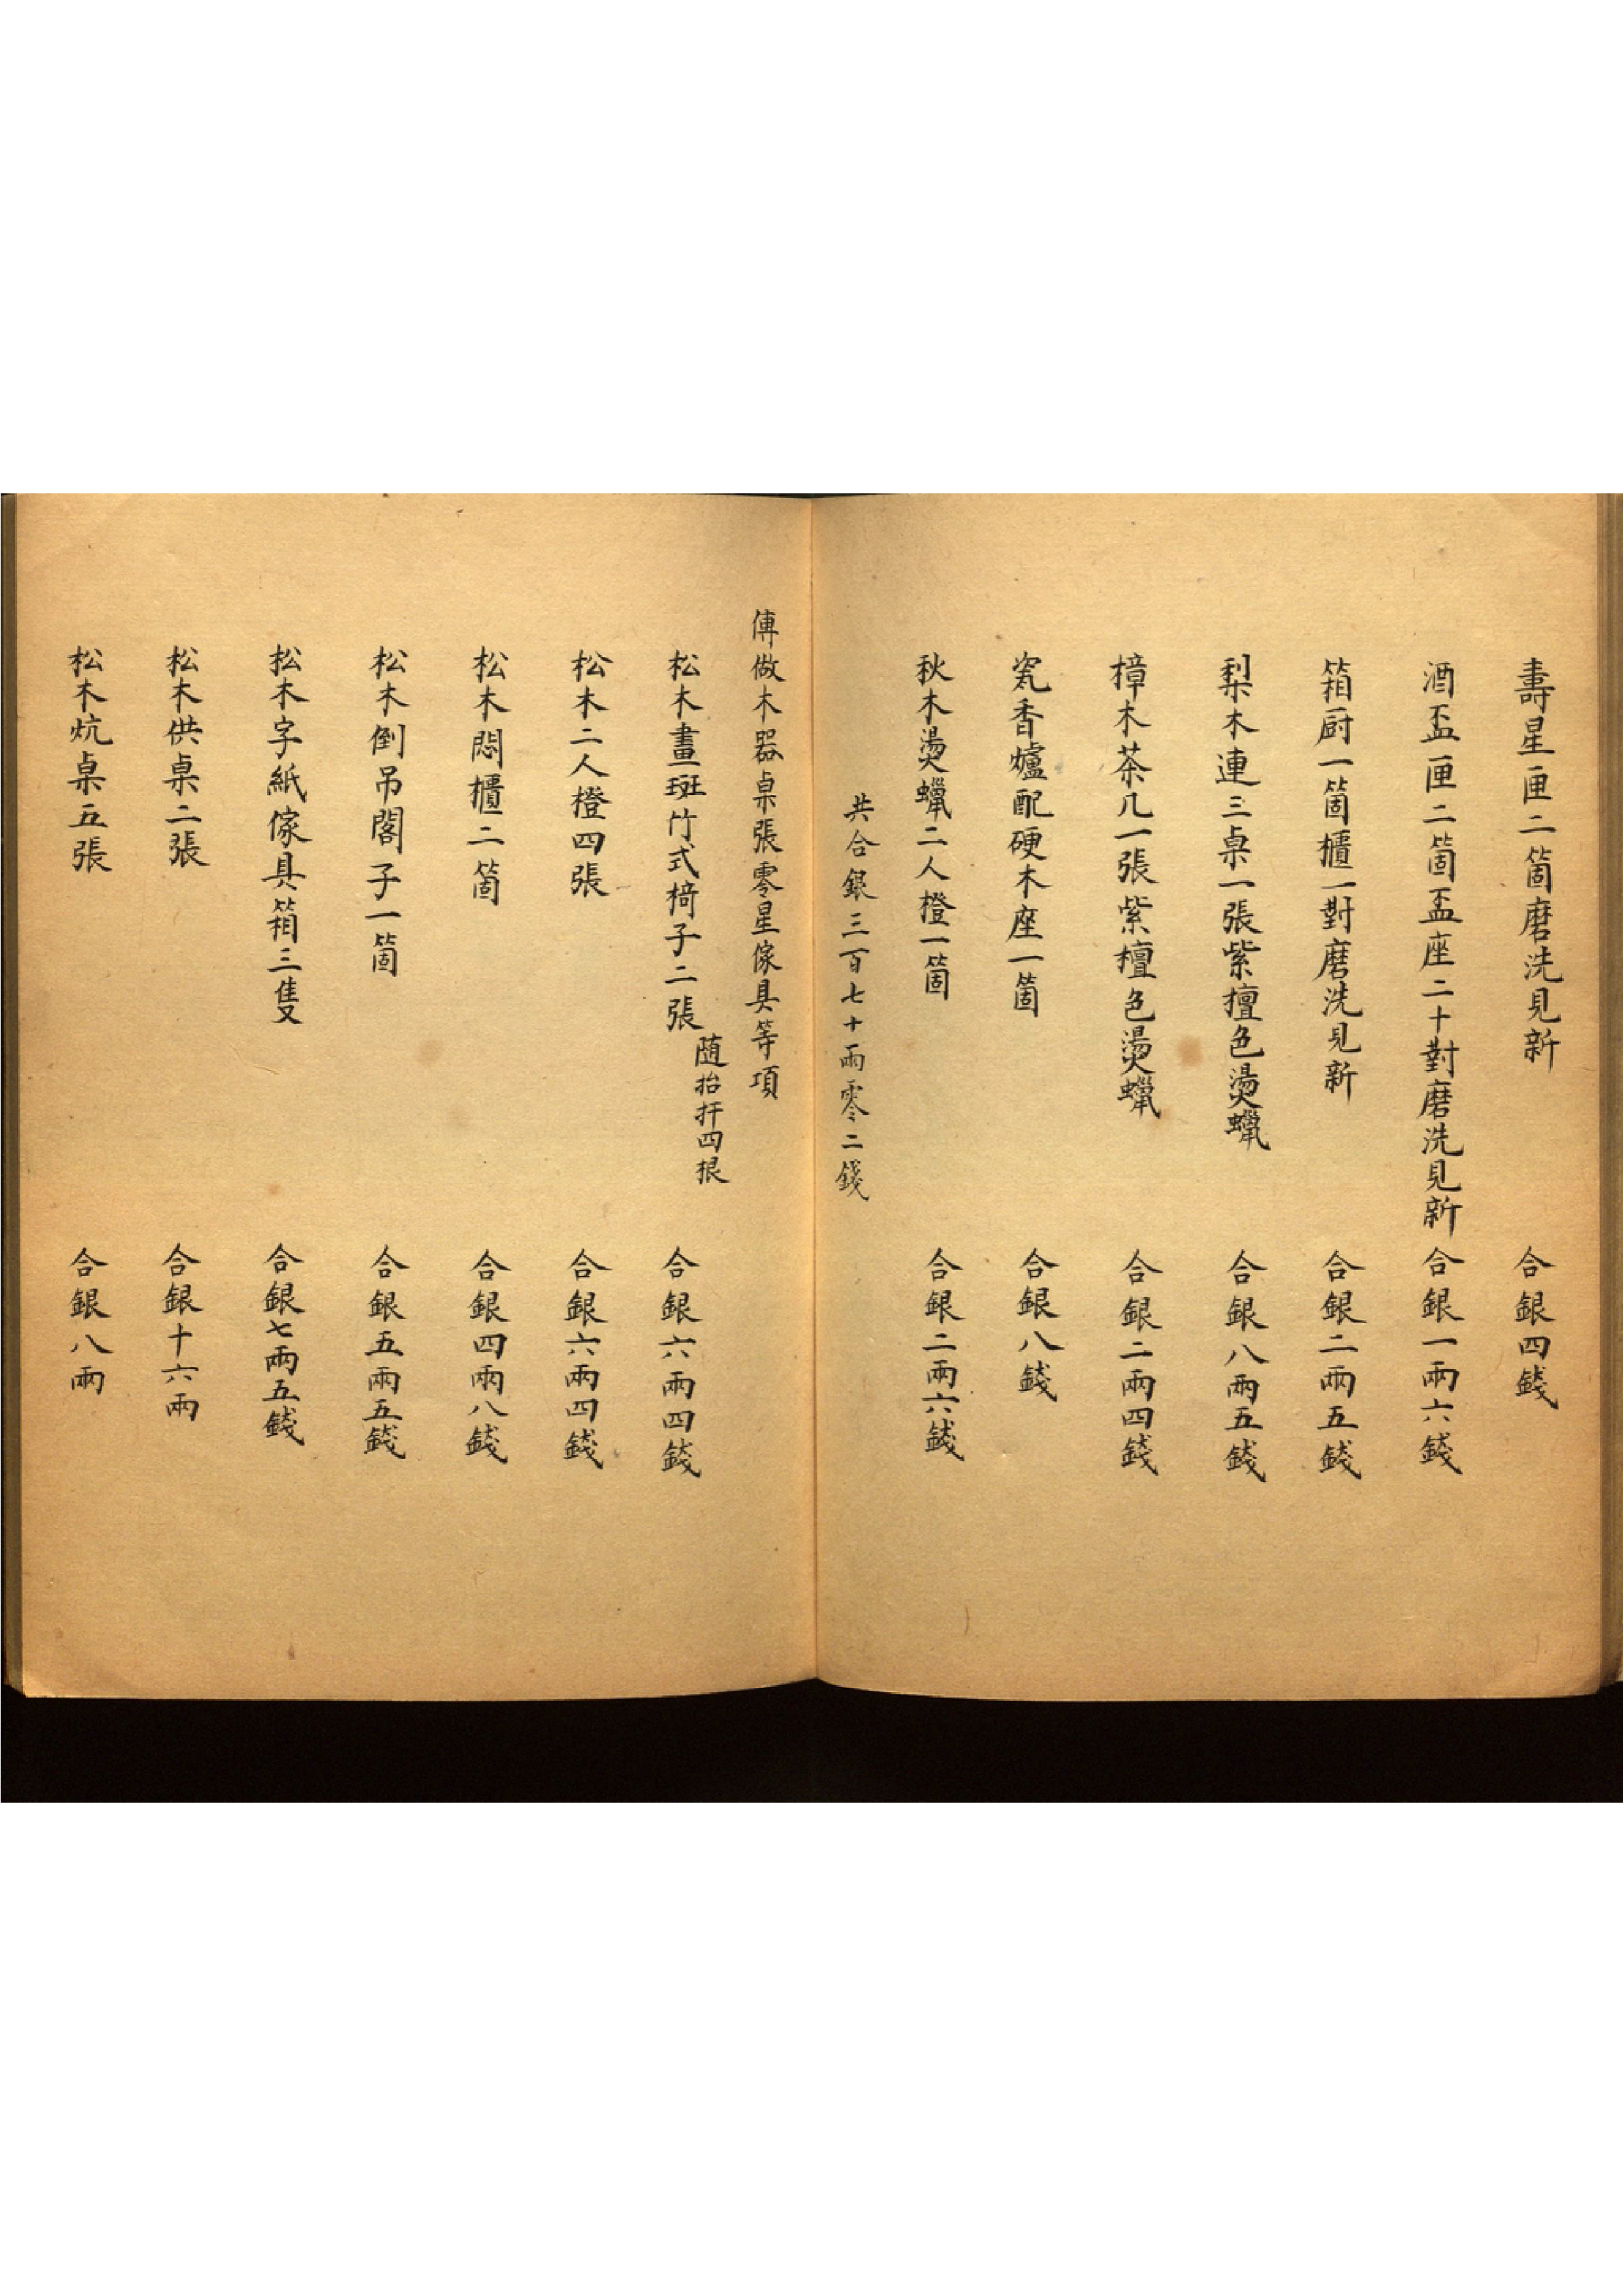 壽星匣二箇磨洗見新 合銀四錢
酒盃匣二箇盃座二十對磨洗見新 合銀一兩六錢
箱厨一箇櫃一對磨洗見新 合銀二兩五錢
梨木連三桌一張紫擅色燙蠟 合銀八兩五錢
樟木茶几一張紫檀色燙蠟 合銀二兩四錢
瓷香爐配硬木座一箇 合銀八錢
秋木燙蠟二人橙一箇 合銀二兩六錢
共合銀三百七十兩零二錢
傳做木器桌張零星傢具等項
松木畫斑竹式椅子二張 随抬扞四根 合銀六兩四錢
松木二人橙四張 合銀六兩四錢
松木悶櫃二箇 合銀四兩八錢
松木倒吊閣子一箇 合銀五兩五錢
松木字紙傢具箱三隻 合銀七兩五錢
松木供桌二張 合銀十六兩
松木炕桌五張 合銀八兩